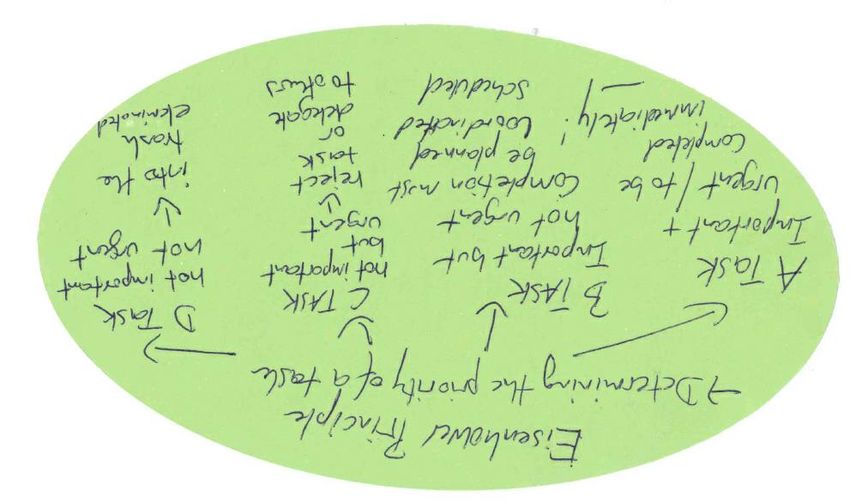 Eisenhower Principle
→ Determining the priority of a task
A Task
Important +
urgent / to be
completed
immediately!
B TASK
Important but
not urgent
Completion must
be planned
coordincted
scheduled
C TASK
not important
but
urgent
reject
task
or
delegate
to others
D Task
not important
not urgent
into the
trash
eleminated